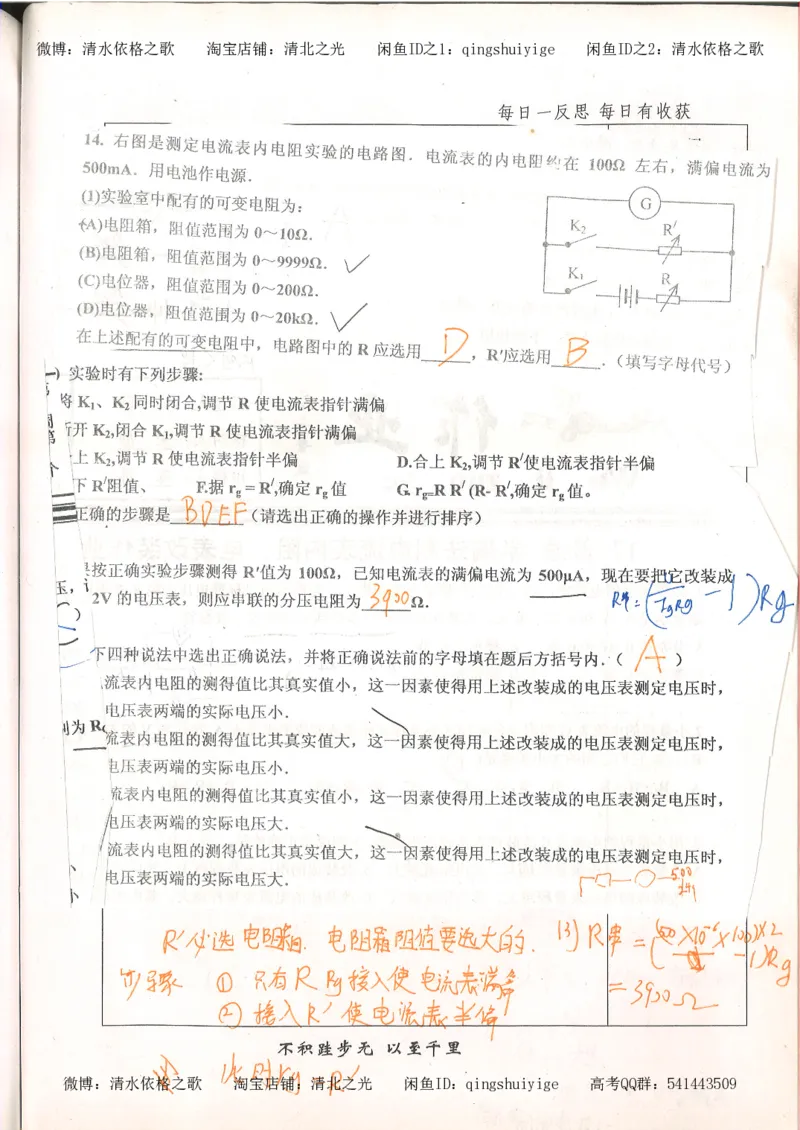 微博：清水依格之歌 淘宝店铺：清北之光 闲鱼ID之1：qingshuiyige 闲鱼ID之2：清水依格之歌
每日一反思 每日有收获
14. 右图是测定电流表内电阻实验的电路图．电流表的内电阻约在 100Ω 左右，满偏电流为
500mA．用电池作电源．
(1)实验室中配有的可变电阻为：
(A)电阻箱，阻值范围为 0～10Ω．
(B)电阻箱，阻值范围为 0～9999Ω．
(C)电位器，阻值范围为 0～200Ω．
(D)电位器，阻值范围为 0～20kΩ．
G
K₂ R′
K₁ R
在上述配有的可变电阻中，电路图中的 R 应选用 D ，R′应选用 B ．（填写字母代号）
) 实验时有下列步骤:
将 K₁、K₂ 同时闭合,调节 R 使电流表指针满偏
开 K₂,闭合 K₁,调节 R 使电流表指针满偏
上 K₂,调节 R 使电流表指针半偏 D.合上 K₂,调节 R′使电流表指针半偏
下 R′阻值、 F.据 rg = R′,确定 rg 值 G. rg=R R′ (R- R′,确定 rg 值。
正确的步骤是 BDEF （请选出正确的操作并进行排序）
按正确实验步骤测得 R′值为 100Ω，已知电流表的满偏电流为 500μA，现在要把它改装成
2V 的电压表，则应串联的分压电阻为 3900 Ω．
R串=(U/IgRg -1)Rg
下四种说法中选出正确说法，并将正确说法前的字母填在题后方括号内．（ A ）
流表内电阻的测得值比其真实值小，这一因素使得用上述改装成的电压表测定电压时，
电压表两端的实际电压小．
流表内电阻的测得值比其真实值大，这一因素使得用上述改装成的电压表测定电压时，
电压表两端的实际电压小．
流表内电阻的测得值比其真实值小，这一因素使得用上述改装成的电压表测定电压时，
电压表两端的实际电压大．
流表内电阻的测得值比其真实值大，这一因素使得用上述改装成的电压表测定电压时，
电压表两端的实际电压大．
R′必选电阻箱．电阻箱阻值要选大的．
步骤 ① 只有R Rg接入使电流表满偏
② 接入R′使电流表半偏
(3) R串
=3900Ω
不积跬步无 以至千里
微博：清水依格之歌 淘宝店铺：清北之光 闲鱼ID：qingshuiyige 高考QQ群：541443509